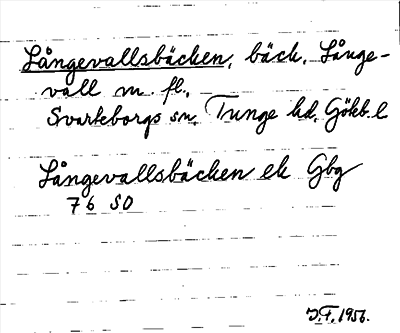 Långevallsbäcken, bäck, Långe-
vall m. fl.
Svarteborgs sn. Tunge hd. Gökb. l
Långevallsbäcken ek Gbg
76 SO
J.F. 1956.